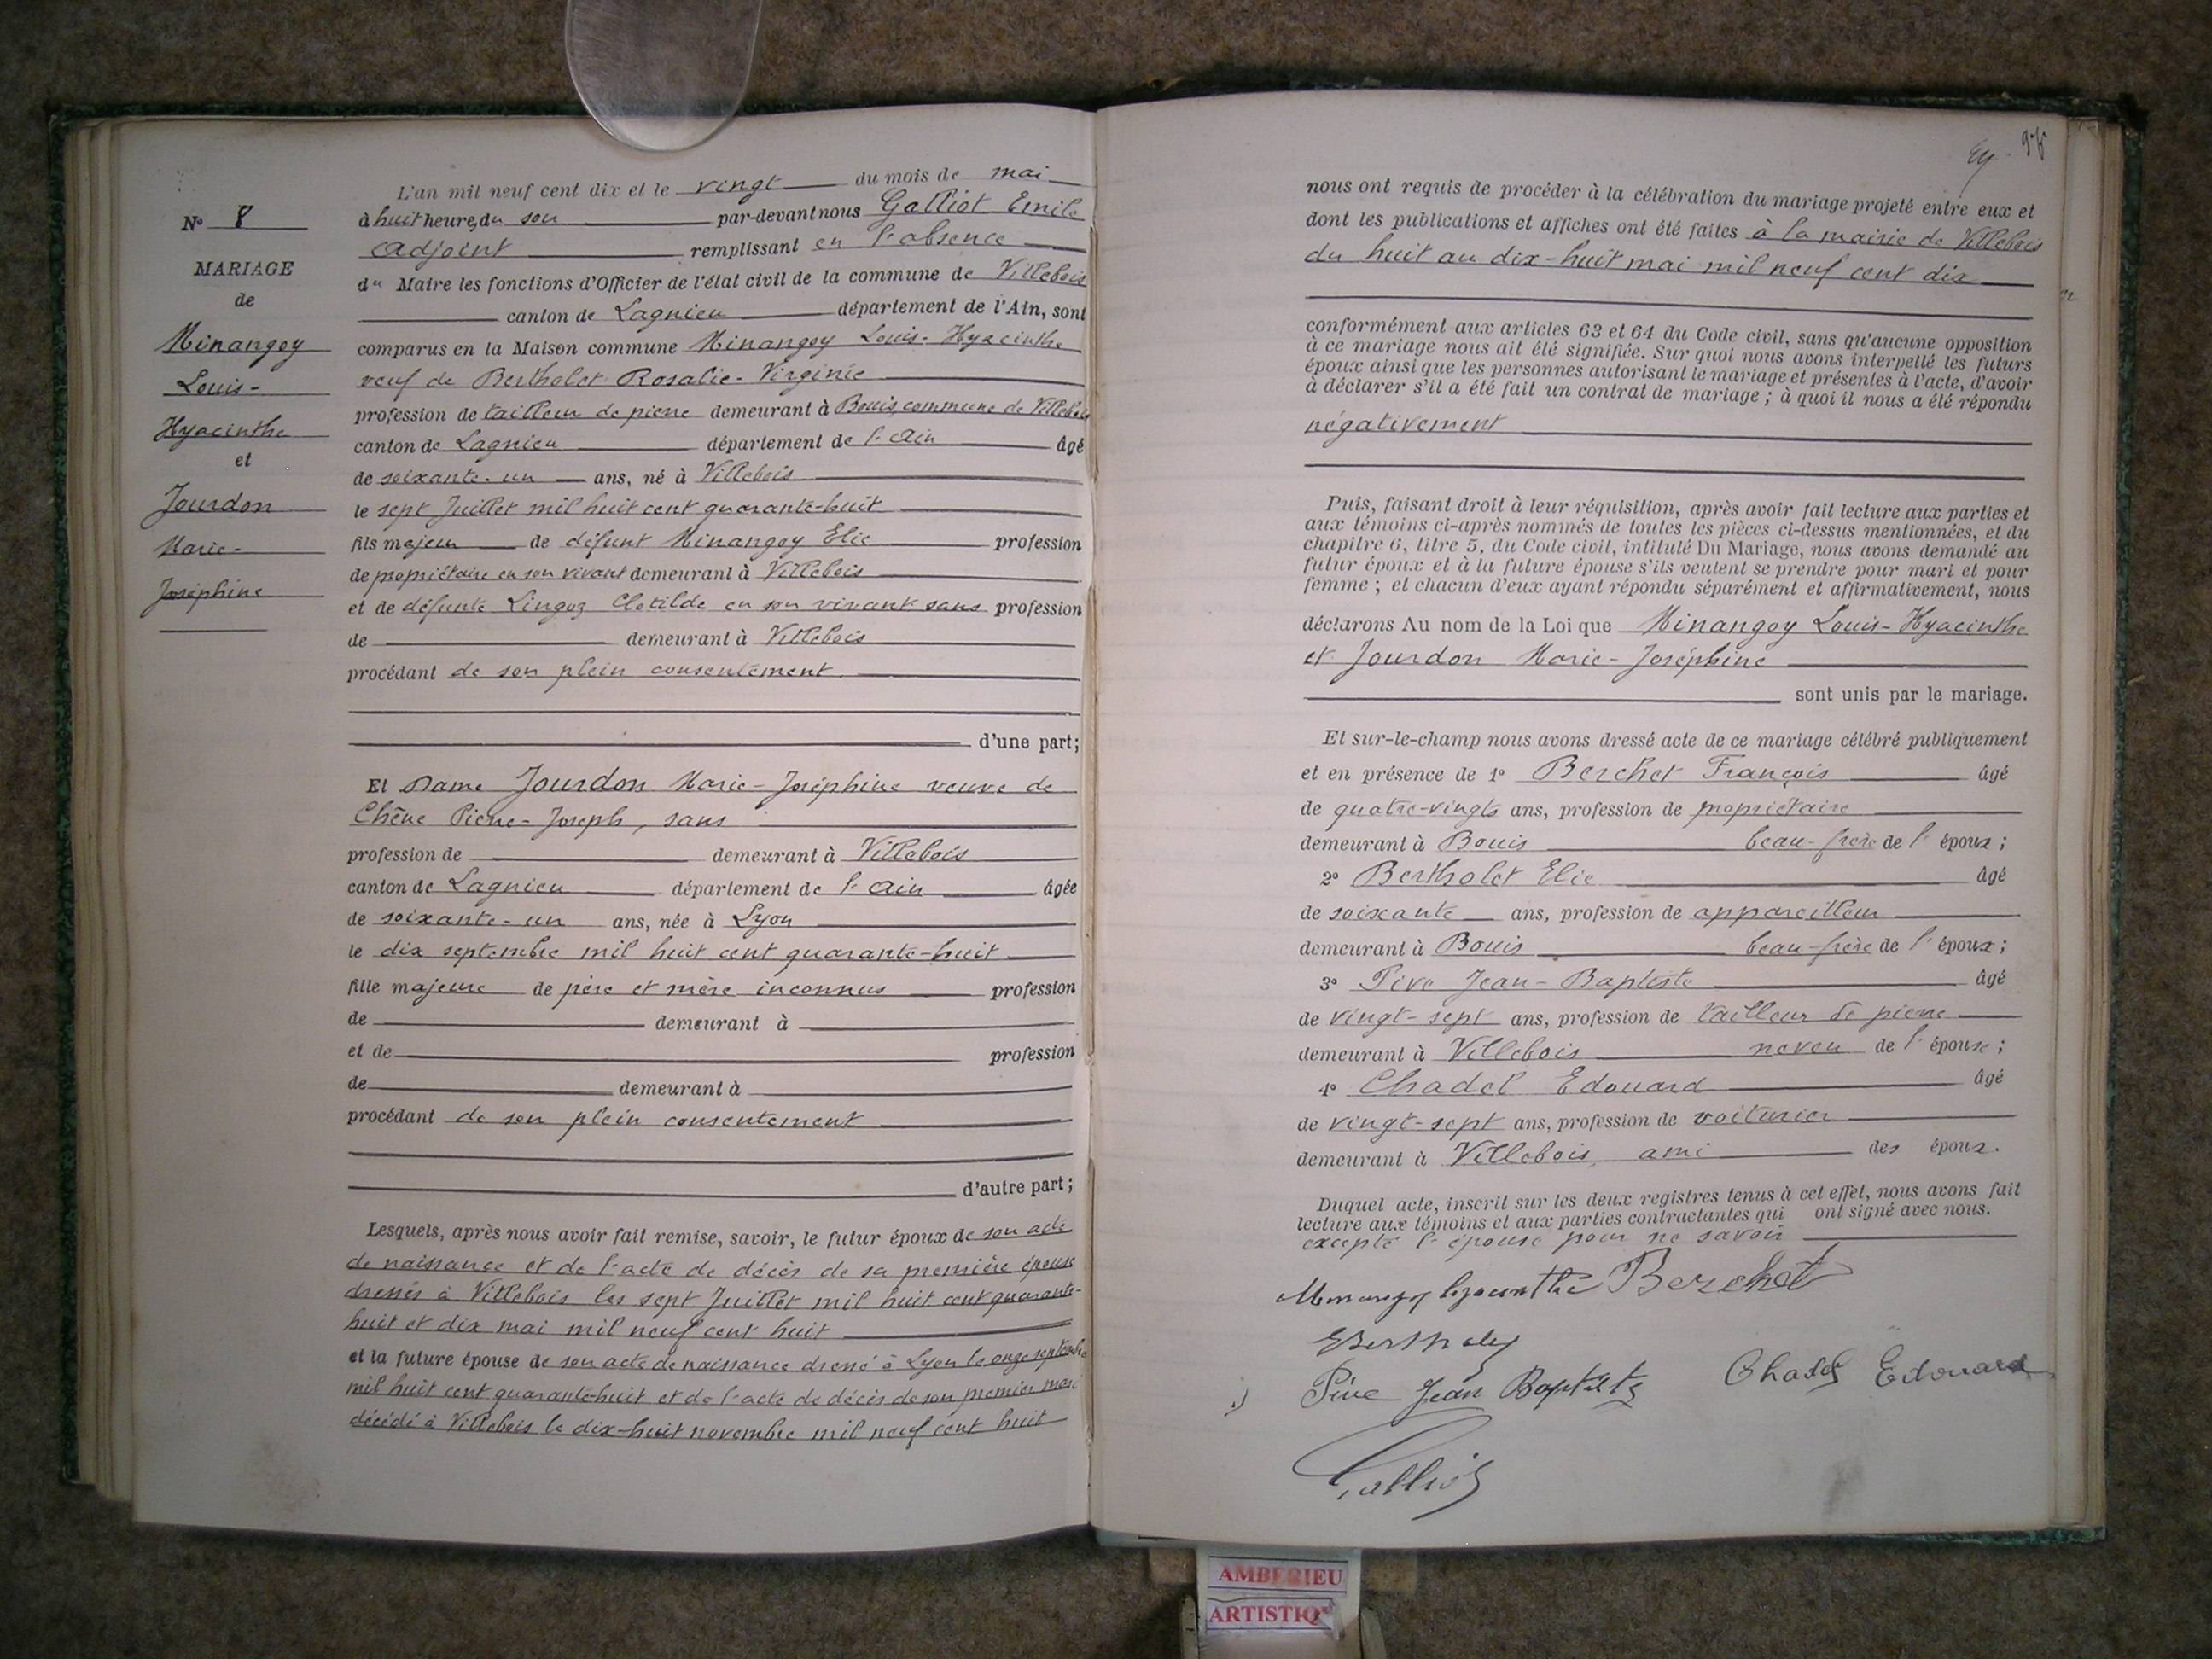 L'an mil neuf cent dix et le vingt du mois de mai
N° 8
à huit heures du soir par-devant nous Galliot Emile
Adjoint remplissant en l'absence
MARIAGE
du Maire les fonctions d'Officier de l'état civil de la commune de Villebois
de
canton de Lagnieu département de l'Ain, sont
Minangoy
comparus en la Maison commune Minangoy Louis-Hyacinthe
Louis-
veuf de Bertholet Rosalie-Virginie
profession de tailleur de pierre demeurant à Bouis, commune de Villebois
Hyacinthe
canton de Lagnieu département de l'Ain âgé
et
de soixante-un ans, né à Villebois
Jourdon
le sept Juillet mil huit cent quarante-huit
Marie-
fils majeur de défunt Minangoy Elie profession
de propriétaire en son vivant demeurant à Villebois
Joséphine
et de défunte Lingoz Clotilde en son vivant sans profession
de demeurant à Villebois
procédant de son plein consentement
d'une part;
Et Dame Jourdon Marie-Joséphine veuve de
Chêne Pierre-Joseph, sans
profession de demeurant à Villebois
canton de Lagnieu département de l'Ain âgée
de soixante-un ans, née à Lyon
le dix septembre mil huit cent quarante-huit
fille majeure de père et mère inconnus profession
de demeurant à
et de profession
de demeurant à
procédant de son plein consentement
d'autre part;
Lesquels, après nous avoir fait remise, savoir, le futur époux de son acte
de naissance et de l'acte de décès de sa première épouse
dressés à Villebois les sept Juillet mil huit cent quarante-
huit et dix mai mil neuf cent huit
et la future épouse de son acte de naissance dressé à Lyon le onze septembre
mil huit cent quarante-huit et de l'acte de décès de son premier mari
décédé à Villebois le dix-huit novembre mil neuf cent huit
nous ont requis de procéder à la célébration du mariage projeté entre eux et
dont les publications et affiches ont été faites à la mairie de Villebois
du huit au dix-huit mai mil neuf cent dix
conformément aux articles 63 et 64 du Code civil, sans qu'aucune opposition
à ce mariage nous ait été signifiée. Sur quoi nous avons interpellé les futurs
époux ainsi que les personnes autorisant le mariage et présentes à l'acte, d'avoir
à déclarer s'il a été fait un contrat de mariage; à quoi il nous a été répondu
négativement
Puis, faisant droit à leur réquisition, après avoir fait lecture aux parties et
aux témoins ci-après nommés de toutes les pièces ci-dessus mentionnées, et du
chapitre 6, titre 5, du Code civil, intitulé Du Mariage, nous avons demandé au
futur époux et à la future épouse s'ils veulent se prendre pour mari et pour
femme; et chacun d'eux ayant répondu séparément et affirmativement, nous
déclarons Au nom de la Loi que Minangoy Louis-Hyacinthe
et Jourdon Marie-Joséphine
sont unis par le mariage.
Et sur-le-champ nous avons dressé acte de ce mariage célébré publiquement
et en présence de 1° Berchet François âgé
de quatre-vingts ans, profession de propriétaire
demeurant à Bouis beau-frère de l'époux;
2° Bertholet Elie âgé
de soixante ans, profession de appareilleur
demeurant à Bouis beau-frère de l'époux;
3° Pive Jean-Baptiste âgé
de vingt-sept ans, profession de tailleur de pierre
demeurant à Villebois neveu de l'épouse;
4° Chadel Edouard âgé
de vingt-sept ans, profession de voiturier
demeurant à Villebois, ami des époux.
Duquel acte, inscrit sur les deux registres tenus à cet effet, nous avons fait
lecture aux témoins et aux parties contractantes qui ont signé avec nous.
excepté l'épouse pour ne savoir
Minangoy hyacinthe Berchet
EBertholet
Pive Jean Baptiste Chadel Edouard
Galliot
AMBERIEU
ARTISTIQ